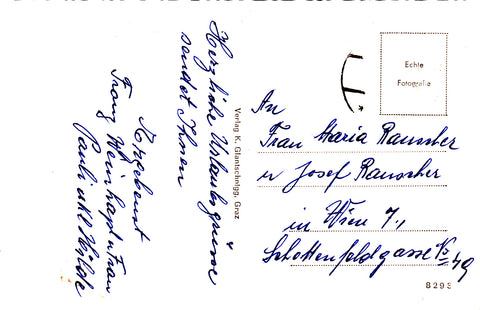 Herzliche Urlaubsgrüsse
sendet Ihnen
Franz
Frau
Verlag K. Glantschnigg, Graz
Echte
Fotografie
An
Frau Maria Rauscher
u Josef Rauscher
in Wien 7.,
Schottenfeldgasse
49
8293